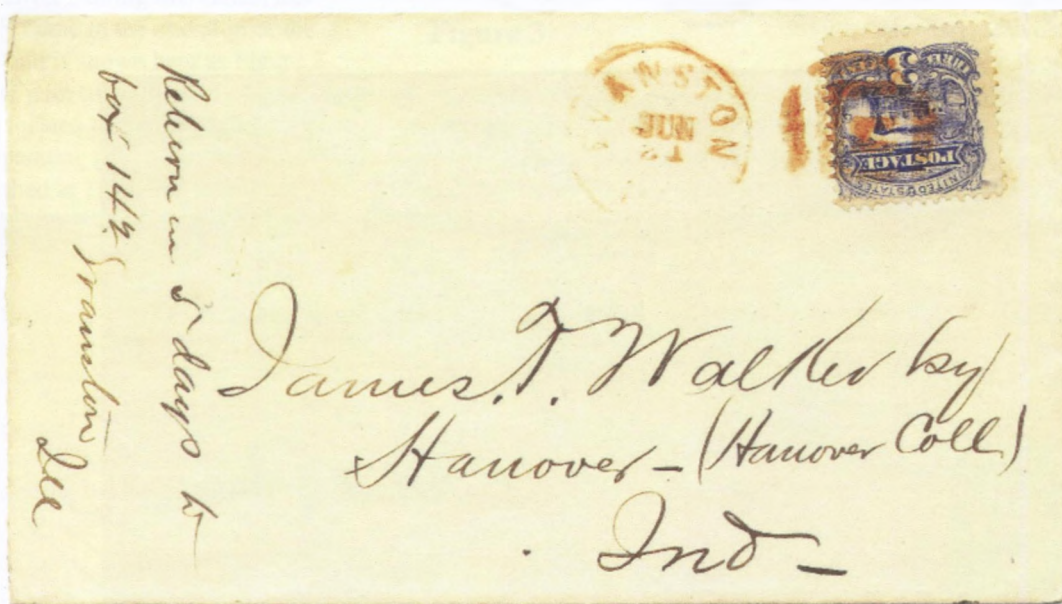 Return in 5 days to
box 149 Evanston
Ill
EVANSTON
JUN
21
3
POSTAGE
UNITED STATES
James. T. Walker Esq
Hanover - (Hanover Coll)
Ind -